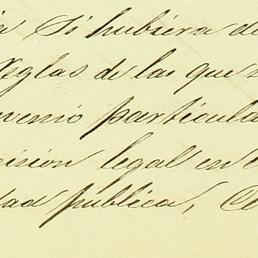 Si hubiera de
reglas de las que
venio particula
icision legal en
dad publica, Co